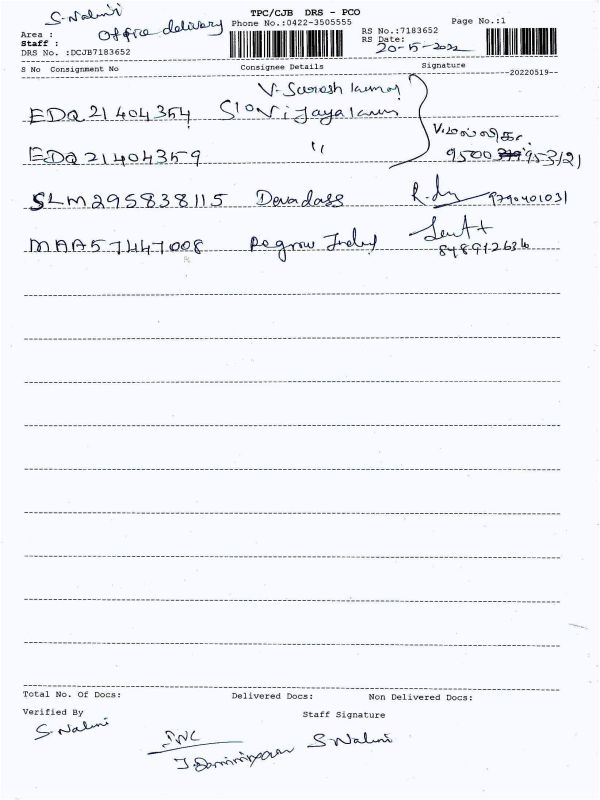 S. Nalini
Office delivery
TPC/CJB DRS - PCO
Page No.:1
Area :
Phone No.:0422-3505555
RS No.:7183652
Staff :
RS Date:
20-5-2022
DRS No. :DCJB7183652
S No Consignment No Consignee Details Signature
--20220519--
V. Suresh kumar
EDQ21404354 S/o Vijayakumar
EDQ21404359 "
9500 953121
SLM295838115 Devadass 9790401031
MAA57447008
848912634
Total No. Of Docs: Delivered Docs: Non Delivered Docs:
Verified By Staff Signature
S. Nalini
S Nalini